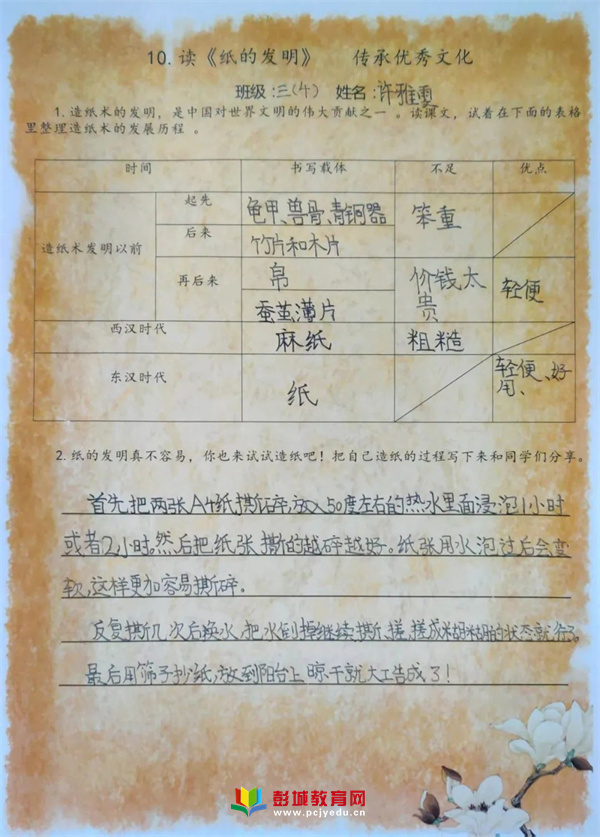 10.读《纸的发明》 传承优秀文化
班级:三(4) 姓名:许雅雯
1.造纸术的发明，是中国对世界文明的伟大贡献之一 。读课文，试着在下面的表格
里整理造纸术的发展历程 。
时间 书写载体 不足 优点
造纸术发明以前
起先 龟甲、兽骨、青铜器 笨重
后来 竹片和木片
再后来 帛 价钱太贵 轻便
蚕茧薄片
西汉时代 麻纸 粗糙
东汉时代 纸 轻便、好用、
2.纸的发明真不容易，你也来试试造纸吧！把自己造纸的过程写下来和同学们分享。
首先,把两张A4纸撕碎,放入50度左右的热水里面浸泡1小时
或者2小时。然后把纸张撕的越碎越好。纸张用水泡过后会变
软,这样更加容易撕碎。
反复撕几次后换水,把水倒掉继续撕、搓,搓成糊糊的状态就行了。
最后用筛子抄纸,放到阳台上晾干就大工告成了！
彭城教育网
www.pcjyedu.cn